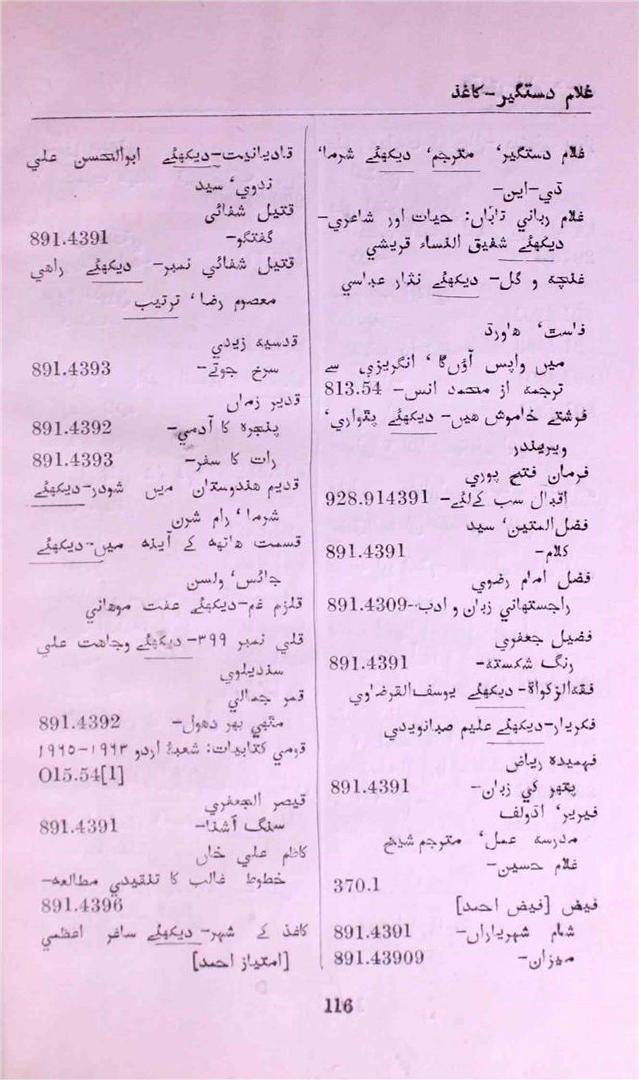 غلام دستگیر-کاغذ
غلام دستگیر، مترجم، دیکھئے شرما،
تی-این-
غلام ربانی تاباں: حیات اور شاعری-
دیکھئے شفیق النساء قریشی
غنچہ و گل- دیکھئے نثار عباسی
فاست، هاورڈ
میں واپس آؤں گا، انگریزی سے
ترجمہ از محمد انس- 813.54
فرشتے خاموش هیں- دیکھئے پٹواری،
ویریندر
فرمان فتح پوری
اقبال سب کےلئے- 928.914391
فضل المتین، سید
کلام- 891.4391
فضل امام رضوی
راجستھانی زبان و ادب-891.4309
فضیل جعفری
رنگ شکستہ- 891.4391
فقه الزکواة- دیکھئے یوسف القرضاوی
فکر یار-دیکھئے علیم صبا نویدی
فہمیدہ ریاض
پتھر کی زبان- 891.4391
فیریر، اڈولف
مدرسہ عمل، مترجم شیخ
غلام حسین-
370.1
فیض [فیض احمد]
شام شہریاراں- 891.4391
میزان- 891.43909
قادیانیت-دیکھئے ابوالحسن علی
ندوی، سید
قتیل شفائی
گفتگو- 891.4391
قتیل شفائی نمبر- دیکھئے راهی
معصوم رضا، ترتیب
قدسیہ زیدی
سرخ جوتے- 891.4393
قدیر زماں
پنجرہ کا آدمی- 891.4392
رات کا سفر- 891.4393
قدیم هندوستان میں شودر-دیکھئے
شرما، رام شرن
قسمت هاتھ کے آینه میں-دیکھئے
جائس، ولسن
قلزم غم-دیکھئے عفت موهانی
قلی نمبر ۳۹۹- دیکھئے وجاهت علی
سندیلوی
قمر جمالی
مٹھی بھر دھول- 891.4392
قومی کتابیات: شعبۂ اردو ۱۹۶۳-۱۹۶۵
O15.54[1]
قیصر الجعفری
سنگ آشنا- 891.4391
کاظم علی خاں
خطوط غالب کا تنقیدی مطالعہ-
891.4396
کاغذ کے شہر- دیکھئے ساغر اعظمی
[امتیاز احمد]
116